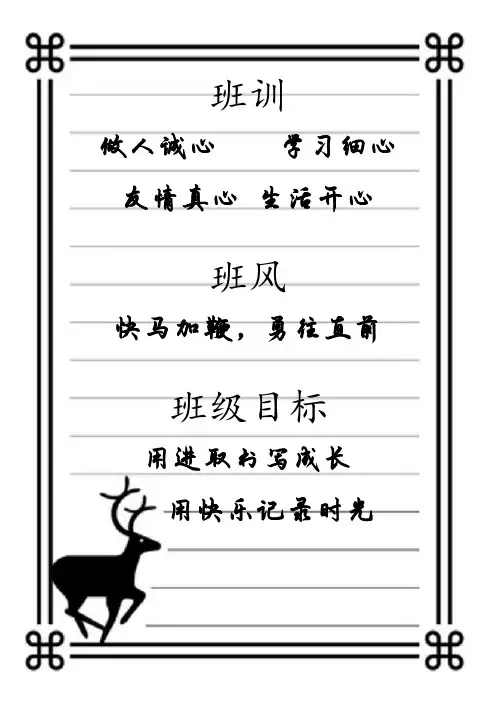 班训
做人诚心 学习细心
友情真心 生活开心
班风
快马加鞭，勇往直前
班级目标
用进取书写成长
用快乐记录时光